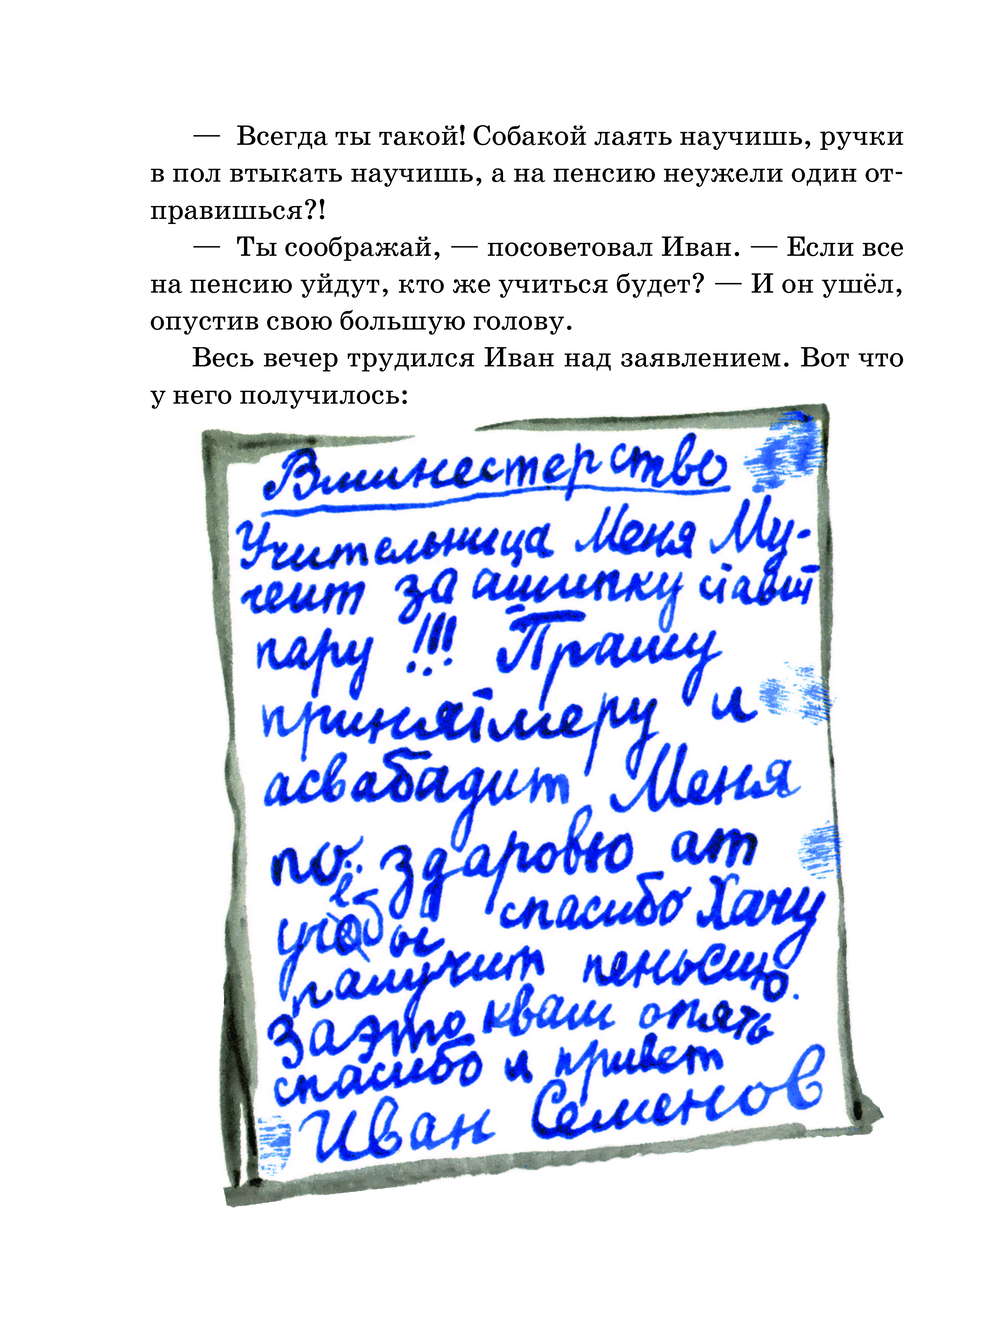 — Всегда ты такой! Собакой лаять научишь, ручки
в пол втыкать научишь, а на пенсию неужели один от-
правишься?!
— Ты соображай, — посоветовал Иван. — Если все
на пенсию уйдут, кто же учиться будет? — И он ушёл,
опустив свою большую голову.
Весь вечер трудился Иван над заявлением. Вот что
у него получилось:
Вминестерство
Учительница Меня Му-
чеит за ашипку ставит
пару !!! Прашу
принятмеру и
асвабадит Меня
по здаровю ат
учёбы спасибо Хачу
палучит пеньсию.
Заэто кваш опять
спасибо и привет
Иван Семенов